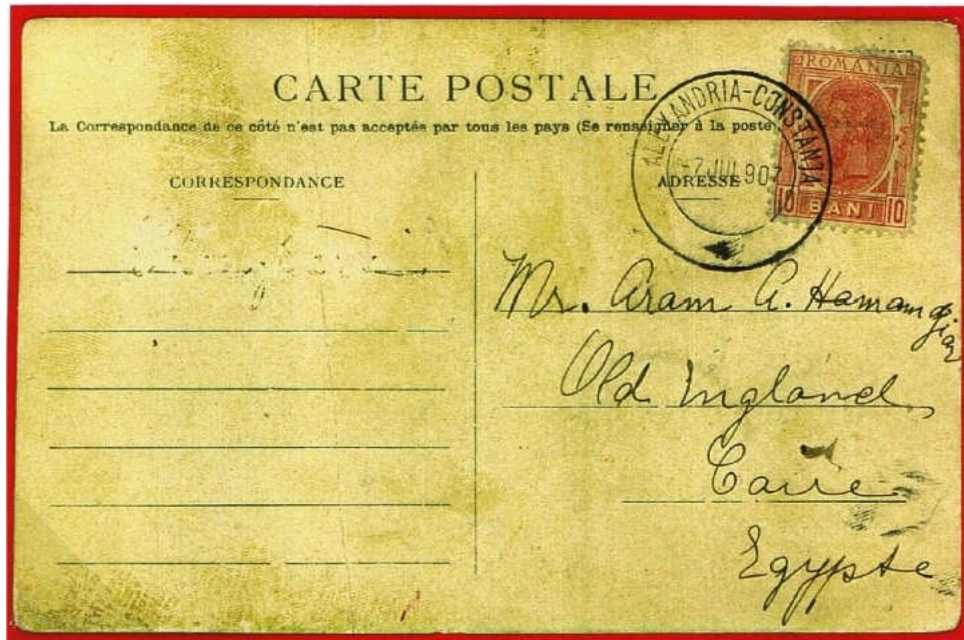 CARTE POSTALE
La Correspondance de ce côté n'est pas acceptée par tous les pays (Se renseigner à la poste)
CORRESPONDANCE
ADRESSE
ALEXANDRIA-CONSTANTA
-7 JUL 907
ROMANIA
10 BANI 10
Mr. Aram A. Hamamgian
Old England
Caire
Egypte